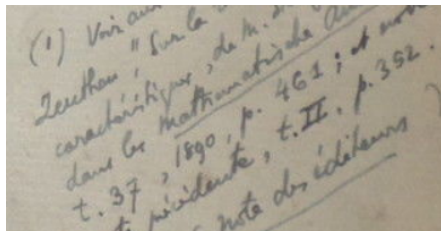 (1) Voir aus
Zeuthen "Sur la
caractéristique, de M. d
dans les Mathematische An
t. 37, 1890, p. 461; et note
précédente, t. II. p. 352.
note des éditeurs)